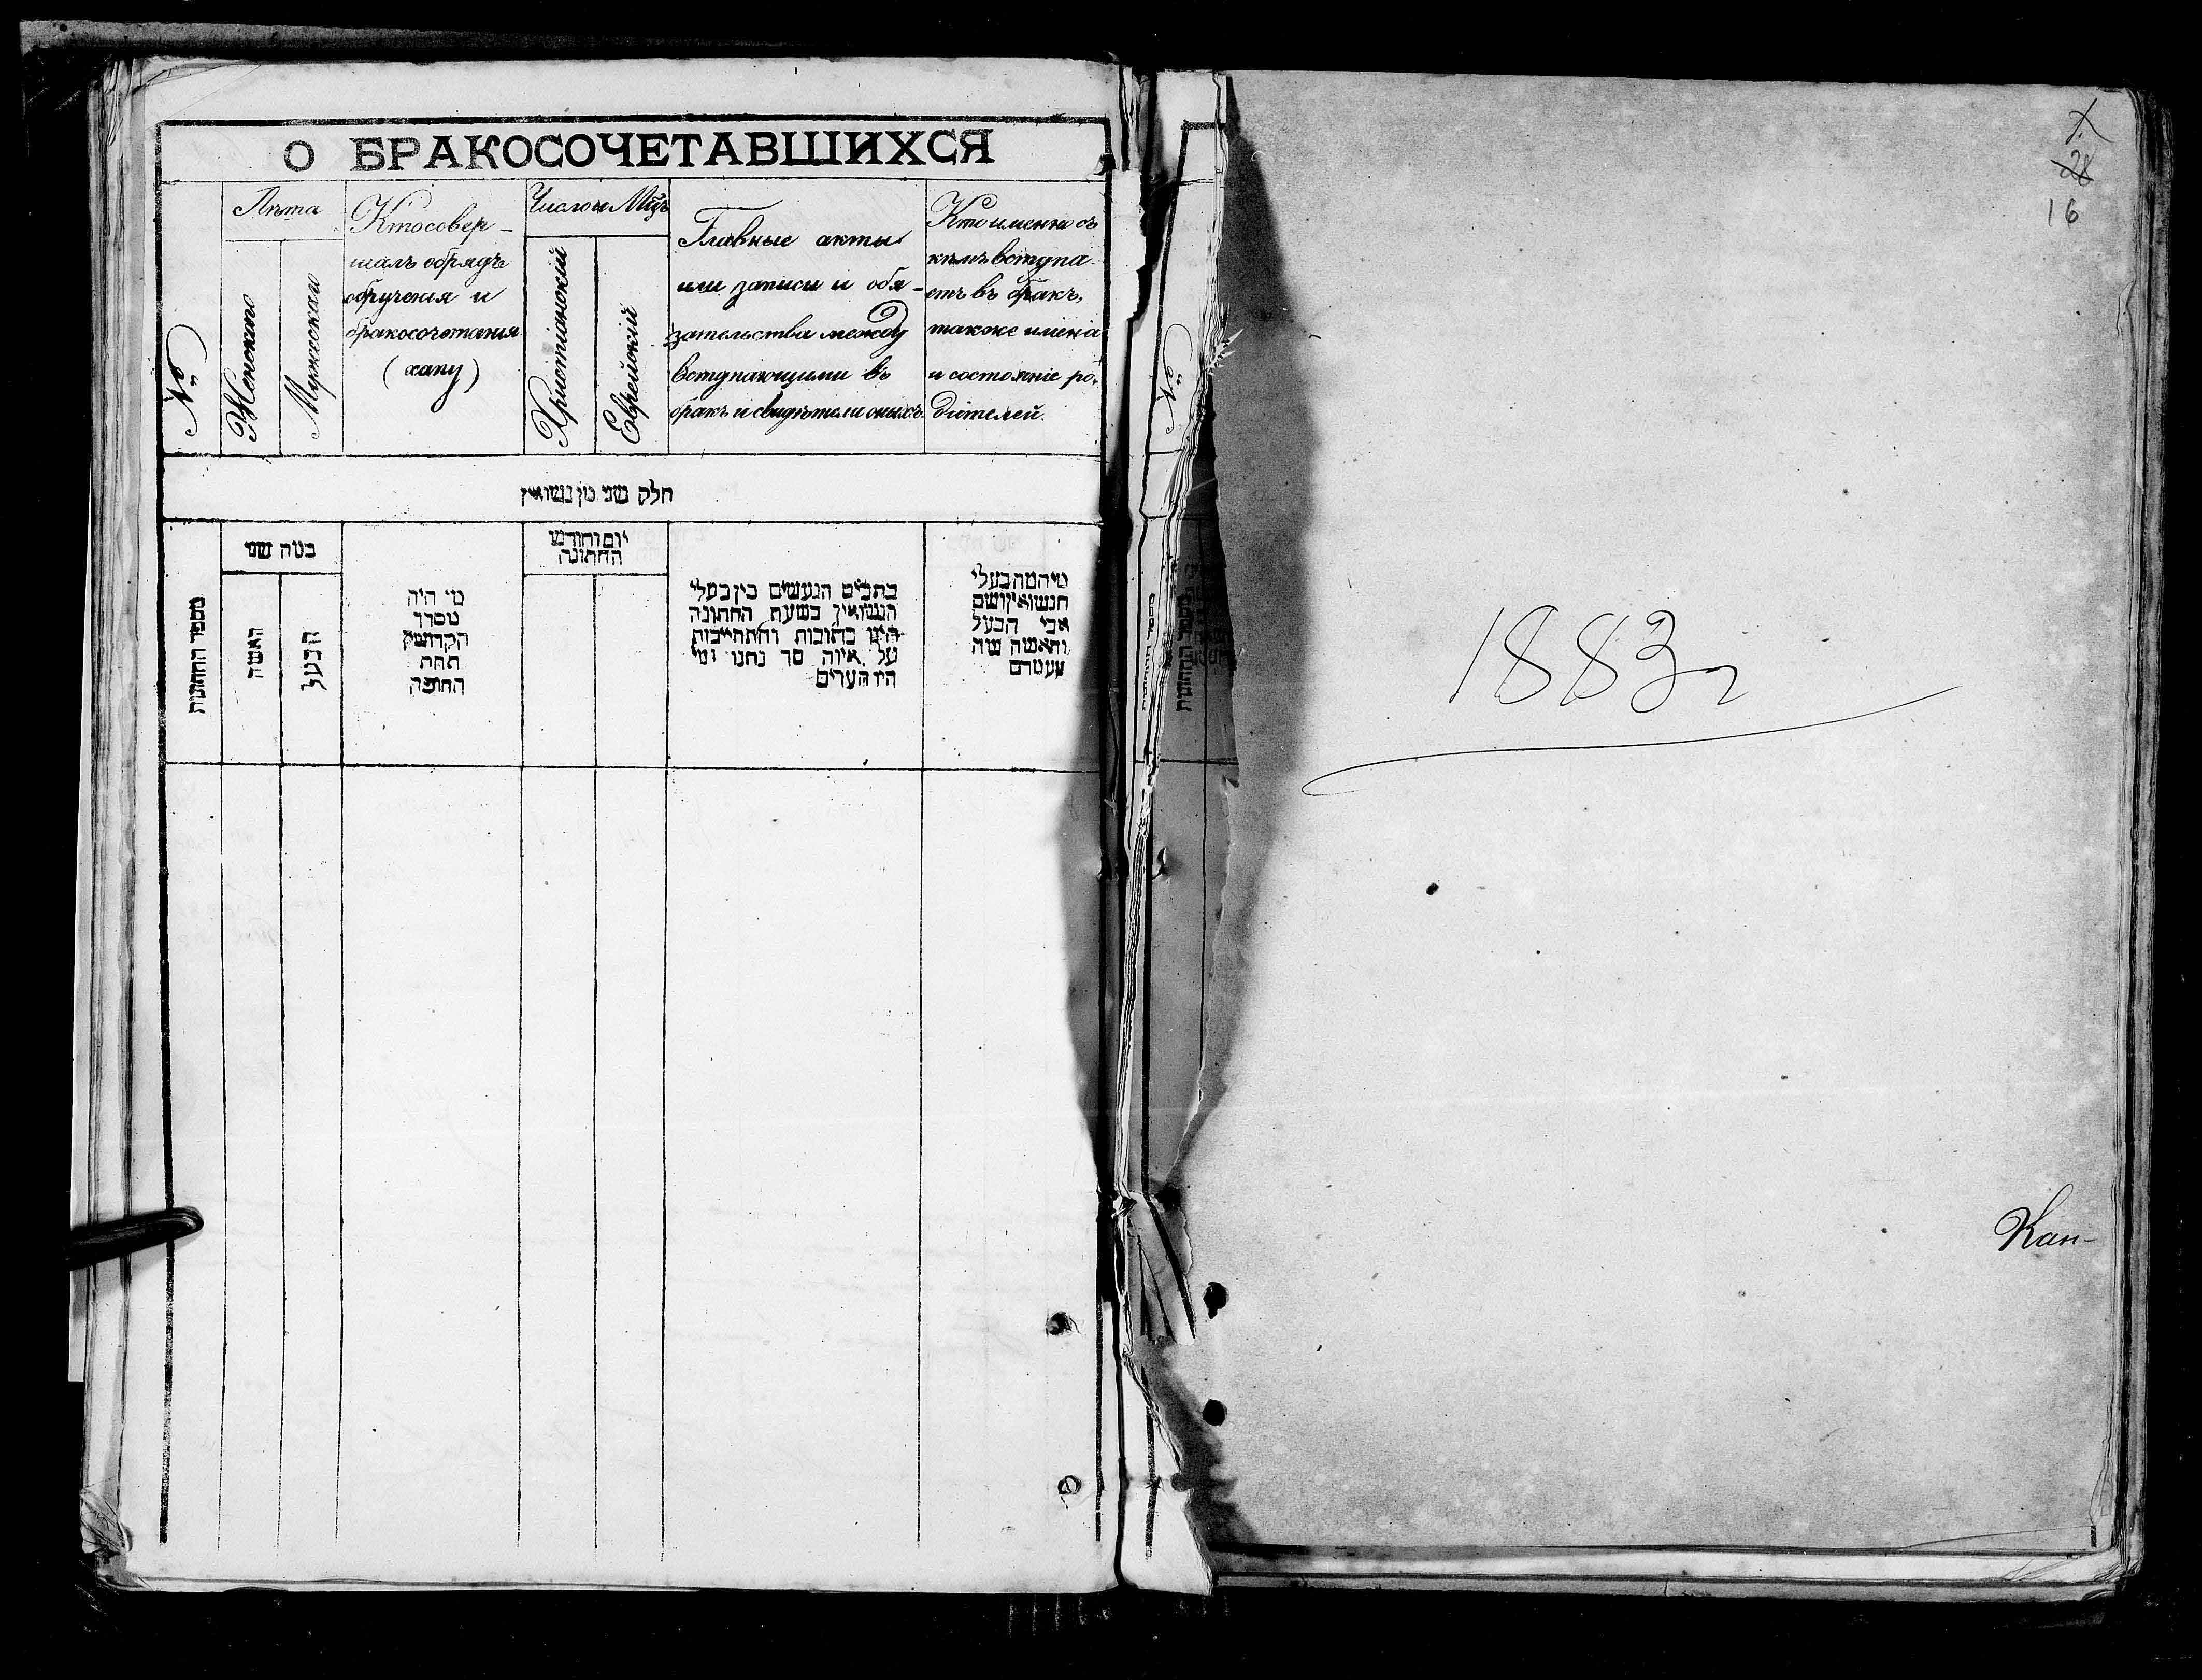 О БРАКОСОЧЕТАВШИХСЯ
№
Лѣта
Женскаго
Мужескаго
Кто совер-
шалъ обрядъ
обрученія и
бракосочетанія
(хапу)
Число и Мцъ
Христіанскій
Еврейскій
Главные акты
или записи и обя-
зательства между
вступающими въ
бракъ и свидѣтели оныхъ
Кто именно съ
кѣмъ вступа-
етъ въ бракъ,
также имена
и состояніе ро-
дителей.
№
חלק שני מן נשואין
מספר החתונות
כמה שני
האשה
הבעל
מי היה
מסדר
הקדושין
תחת
החופה
יום וחודש
החתונה
כתבים הנעשים בין בעלי
הנשואין בשעת החתונה
היינו כתובות והתחייבות
על איזה סך נתנו ומי
היו העדים
מי המה בעלי
הנשואין ושם
אבי הבעל
והאשה ומה
מעמדם
מספר החתונות
מספר החתונות
1
28
16
1883 г
Кан-